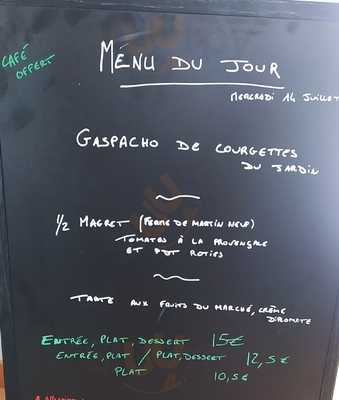 CAFÉ
OFFERT
MÉNU DU JOUR
MERCREDI 14 JUILLET
GASPACHO DE COURGETTES
DU JARDIN
1/2 MAGRET (FERME DE MARTIN NEUF)
TOMATES À LA PROVENÇALE
ET PDT ROTIES
TARTE AUX FRUITS DU MARCHÉ, CRÈME
DIPLOMATE
ENTRÉE, PLAT, DESSERT 15€
ENTRÉE, PLAT / PLAT, DESSERT 12,5€
PLAT 10,5€